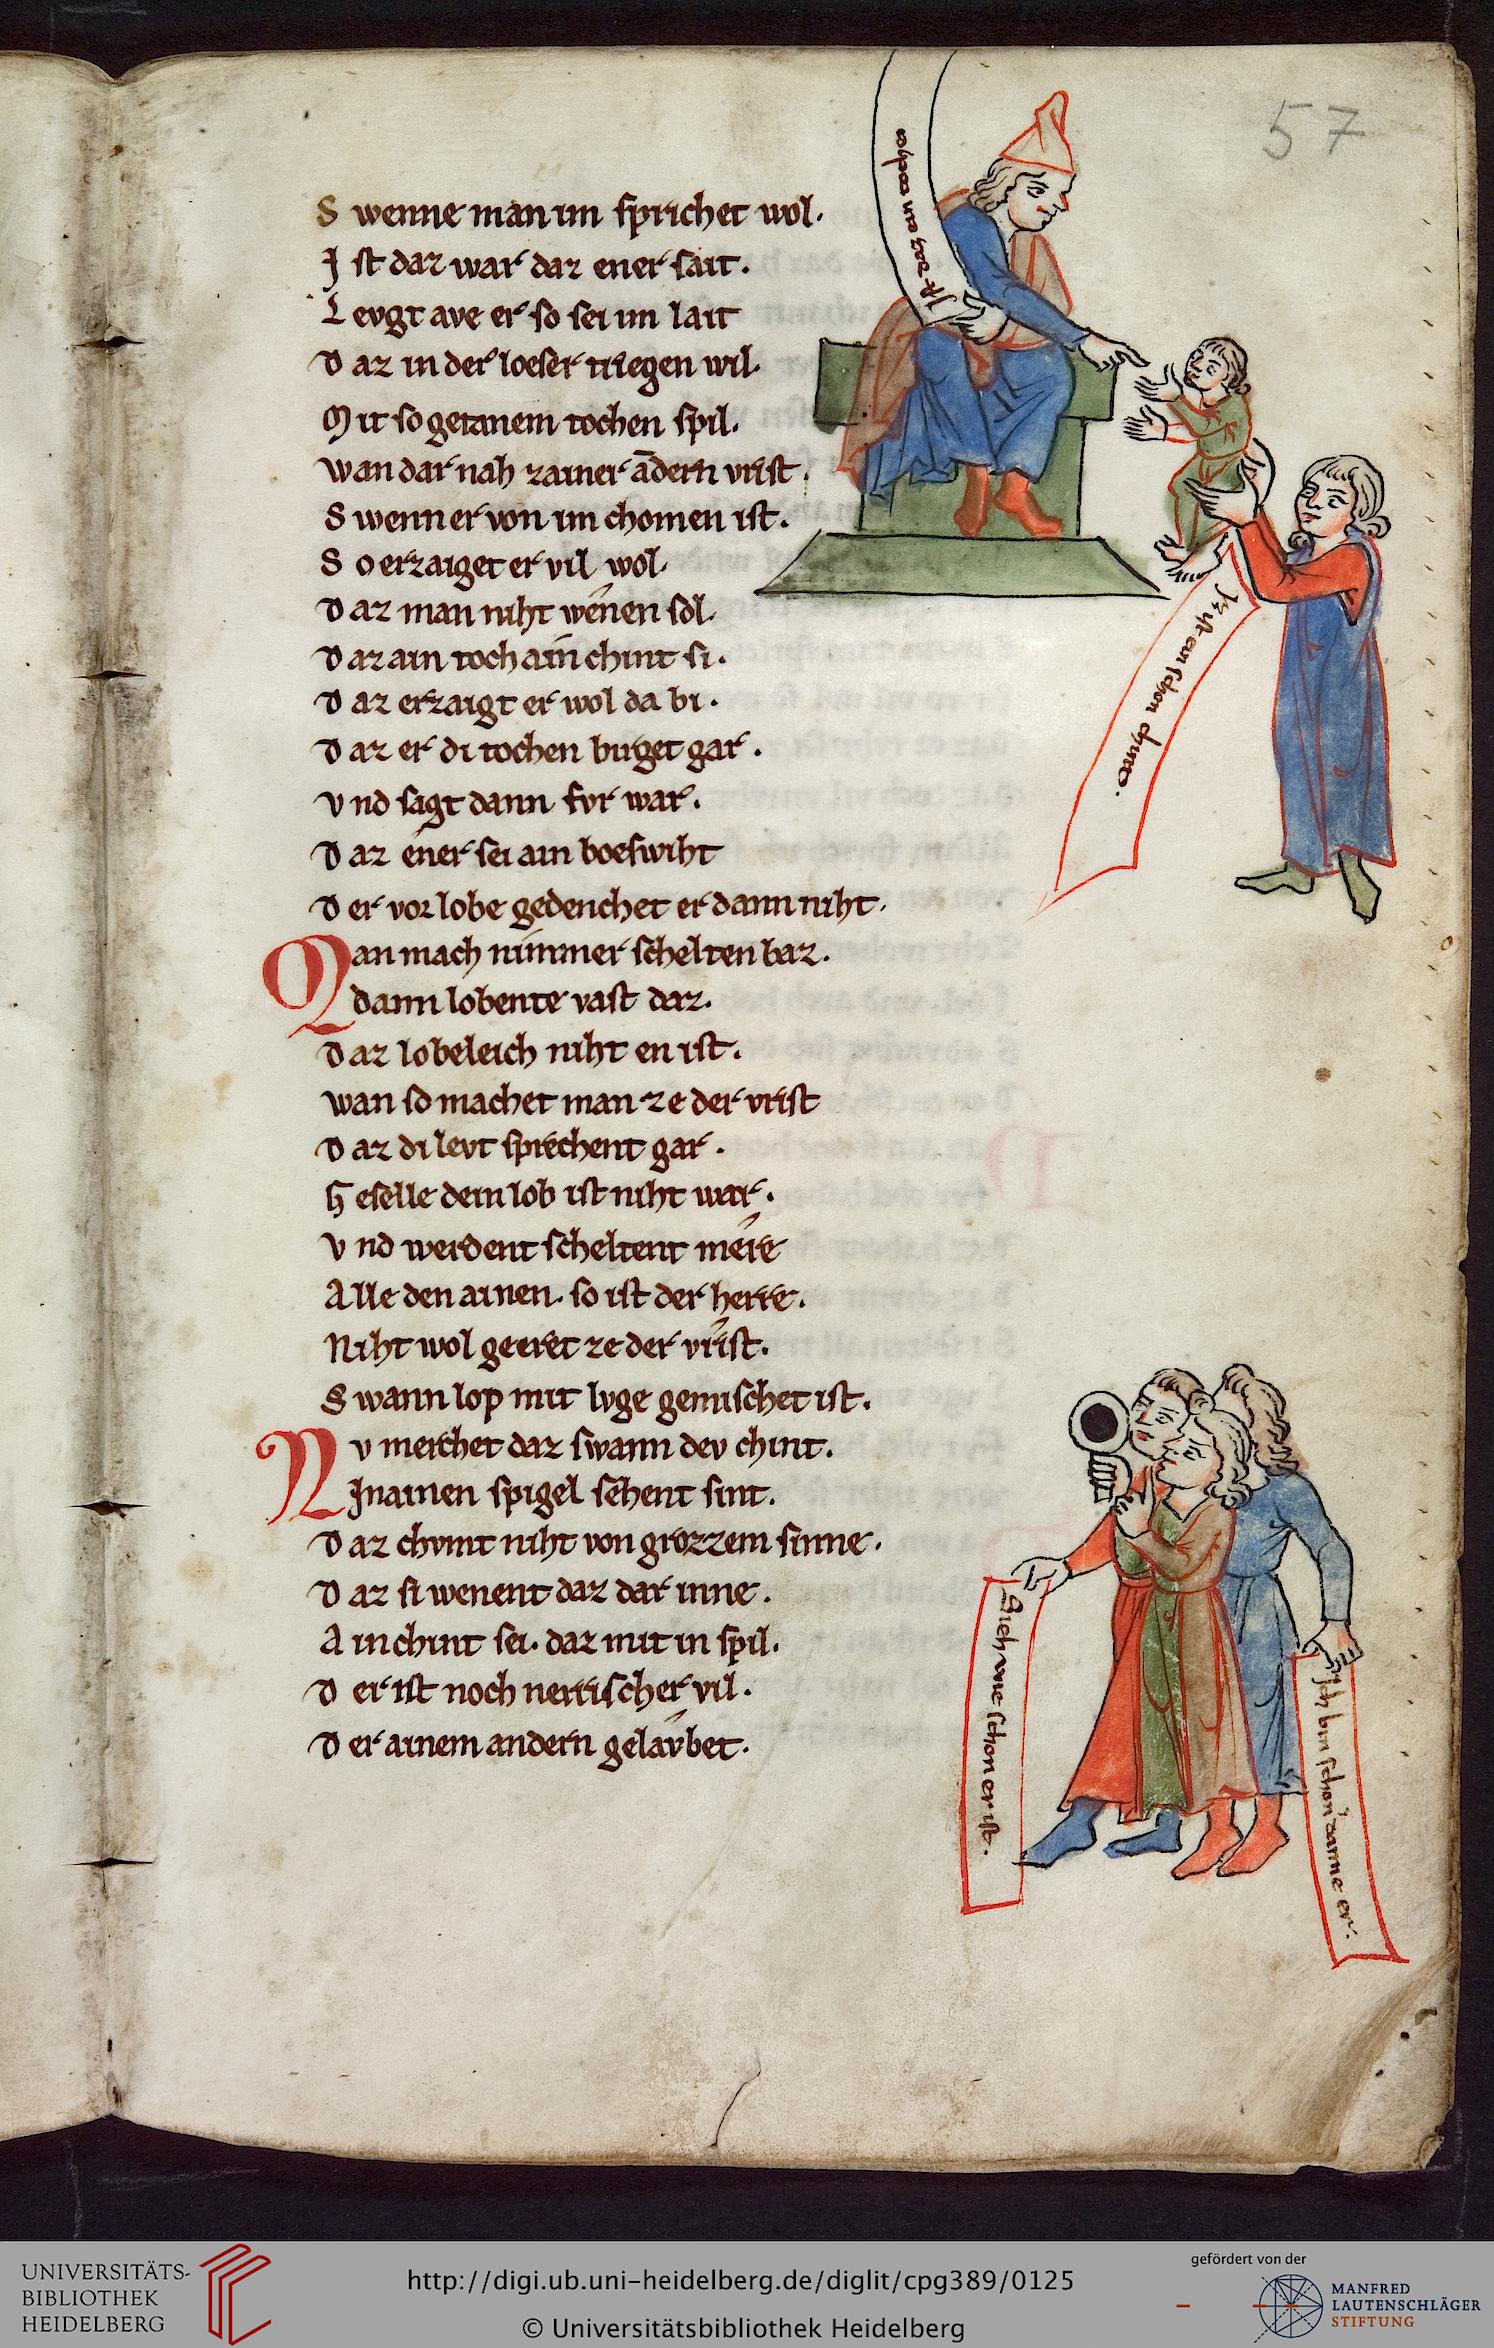 57
S wenne man im sprichet wol.
I st daz war daz ener sait.
L evgt ave er so sei im lait
D az in der loeser triegen wil.
M it so getanem tochen spil.
wan dar nah zainer ādern vrist.
S wenn er von im chomen ist.
S o erzaiget er vil wol.
D az man niht wenen sol.
D az ain toch ain chint si.
D az erzaigt er wol da bi.
D az er di tochen birget gar.
v nd sagt dann fvr war.
D az ener sei ain boeswiht
D er vor lobe gedenchet er dann niht.
Man mach nimmer schelten baz.
dann lobente vast daz.
D az lobeleich niht en ist.
wan so machet man ze der vrist
D az di levt sprechent gar.
G eselle dein lob ist niht war.
v nd werdent scheltent mere
A lle den ainen. so ist der herre.
Niht wol geeret ze der vrist.
S wann lop mit lvge gemischet ist.
Nv merchet daz swann dev chint.
Jn ainen spigel sehent sint.
D az chvmt niht von grozzem sinne.
D az si wenent daz dar inne.
A in chint sei. daz mit in spil.
D er ist noch nerrischer vil.
D er ainem andern gelavbet.
Jst daz ein
Jz ist ein schon chint.
Sich wie schon er ist.
Jch bin schon danne er.
UNIVERSITÄTS-
BIBLIOTHEK
HEIDELBERG
http://digi.ub.uni-heidelberg.de/diglit/cpg389/0125
© Universitätsbibliothek Heidelberg
gefördert von der
MANFRED
LAUTENSCHLÄGER
STIFTUNG